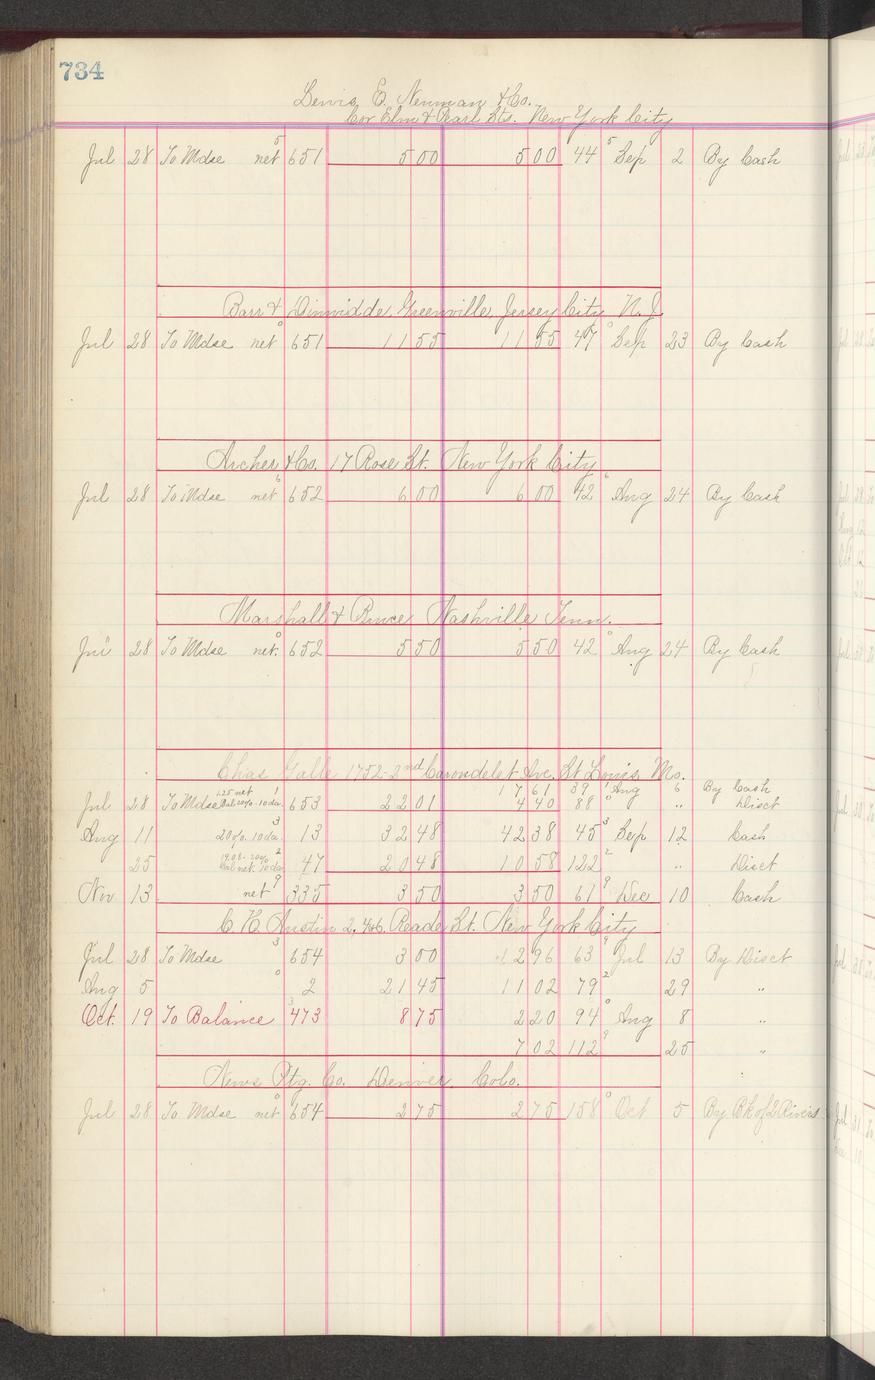 734
Lewis E. Neuman & Co.
Cor Elm & Pearl Sts. New York City
Jul 28 To Mdse net 5 651 5 00 5 00 44 5 Sep 2 By Cash
Barr & Dinwidde, Greenville, Jersey City N.J.
Jul 28 To Mdse net 0 651 11 55 11 55 47 0 Sep 23 By Cash
Archer & Co. 17 Rose St. New York City
Jul 28 To Mdse net 6 652 6 00 6 00 42 6 Aug 24 By Cash
Marshall & Bruce Nashville Tenn.
Jul 28 To Mdse net. 0 652 5 50 5 50 42 0 Aug 24 By Cash
Chas Galle 1752-2nd Carondelet Ave. St Louis Mo.
17 61 39 1 Aug 6 By Cash
Jul 28 To Mdse 1.25 net Bal 20% 10 da. 1 653 22 01 4 40 88 0 " Disct
Aug 11 20% 10 da. 3 13 32 48 42 38 45 3 Sep 12 Cash
25 19.08 - 20% Bal net 10 da 2 47 20 48 10 58 122 2 " Disct
Nov 13 net 9 335 3 50 3 50 61 9 Dec 10 Cash
C H Austin 2, 4 & 6 Reade St. New York City
Jul 28 To Mdse 3 654 3 00 12 96 63 9 Jul 13 By Disct
Aug 5 0 2 21 45 11 02 79 2 29 "
Oct. 19 To Balance 473 8 75 2 20 94 0 Aug 8 "
7 02 112 9 25 "
News Ptg. Co. Denver, Colo.
Jul 28 To Mdse net 0 654 2 75 2 75 158 0 Oct 5 By Bk of 2 Rivers